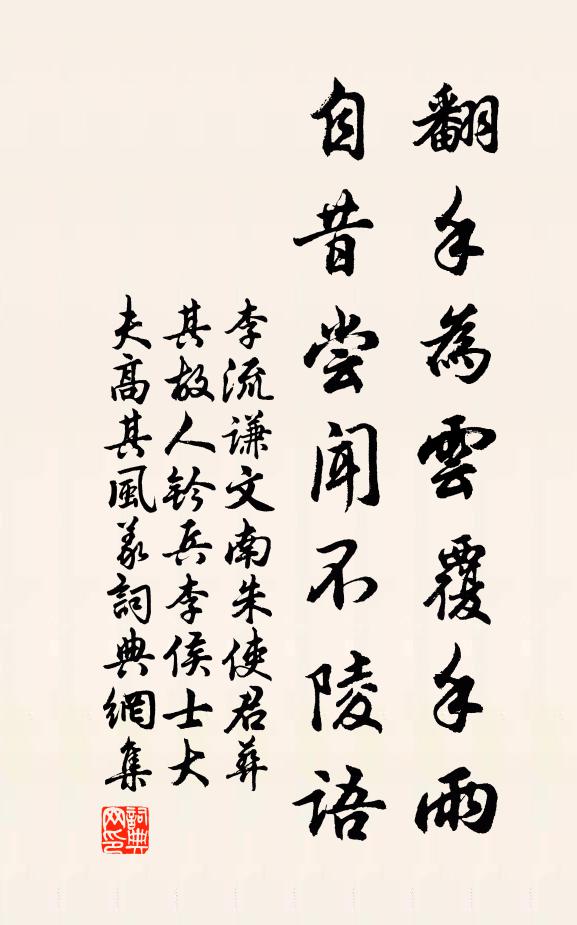 翻手為雲覆手雨
自昔尝闻不陵語
李流謙文南朱使君葬
其故人鈐兵李侯士大
夫高其風义詞典網集
詞典网印